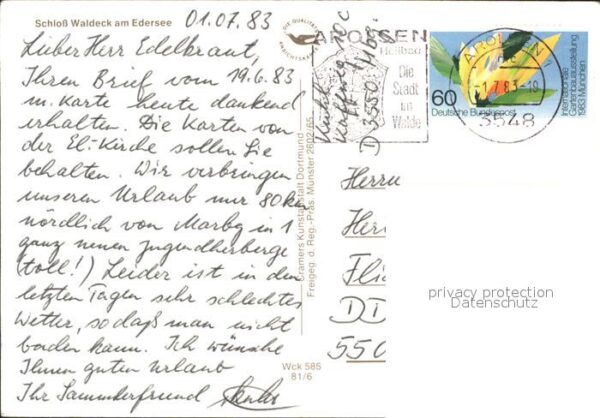 Schloß Waldeck am Edersee
01.07.83
Lieber Herr Edelkraut,
Ihren Brief vom 19.6.83
m. Karte heute dankend
erhalten. Die Karten von
der El.-Kirche sollen Sie
behalten. Wir verbringen
unseren Urlaub nur 80 km
nördlich von Marbg in 1
ganz neuen Jugendherberge
(toll!) Leider ist in den
letzten Tagen sehr schlechtes
Wetter, so daß man nicht
baden kann. Ich wünsche
Ihnen guten Urlaub
Ihr Sammlerfreund
DIE QUALITÄTS
ANSICHTSKARTE
Cramers Kunstanstalt Dortmund
Freigeg. d. Reg.-Präs. Münster 2602/65
Wck 585
81/6
D 3550
AROLSEN
Heilbad
Die
Stadt
im
Walde
AROLSEN 1
-1.7.83-19
3548
60
Deutsche Bundespost
Internationale
Gartenbauausstellung
1983 München
Herrn
Her
Flie
DD
550
privacy protection
Datenschutz